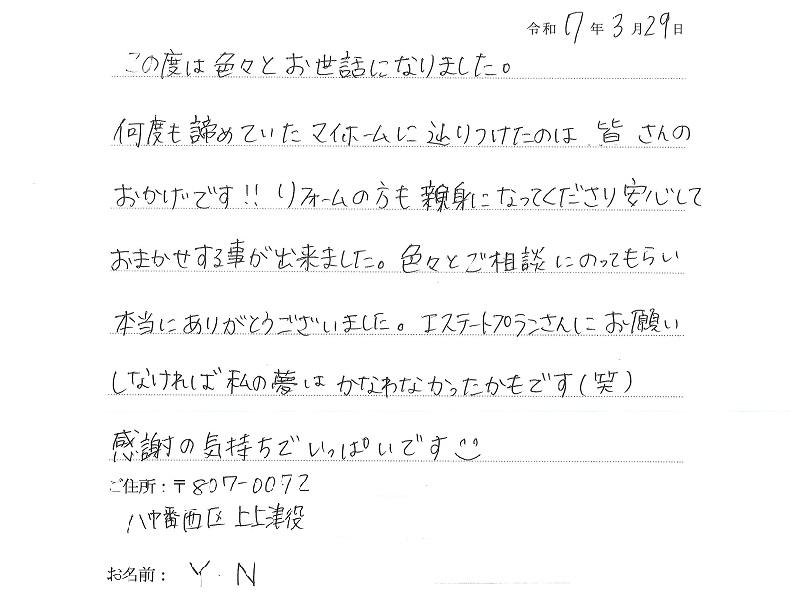 令和7年3月29日
この度は色々とお世話になりました。
何度も諦めていたマイホームに辿りつけたのは 皆さんの
おかげです!!リフォームの方も親身になってくださり安心して
おまかせする事が出来ました。色々とご相談にのってもらい
本当にありがとうございました。エステートプランさんにお願い
しなければ私の夢はかなわなかったかもです(笑)
感謝の気持ちでいっぱいです
ご住所:〒807-0072
八中番西区上上津役
お名前: Y.N